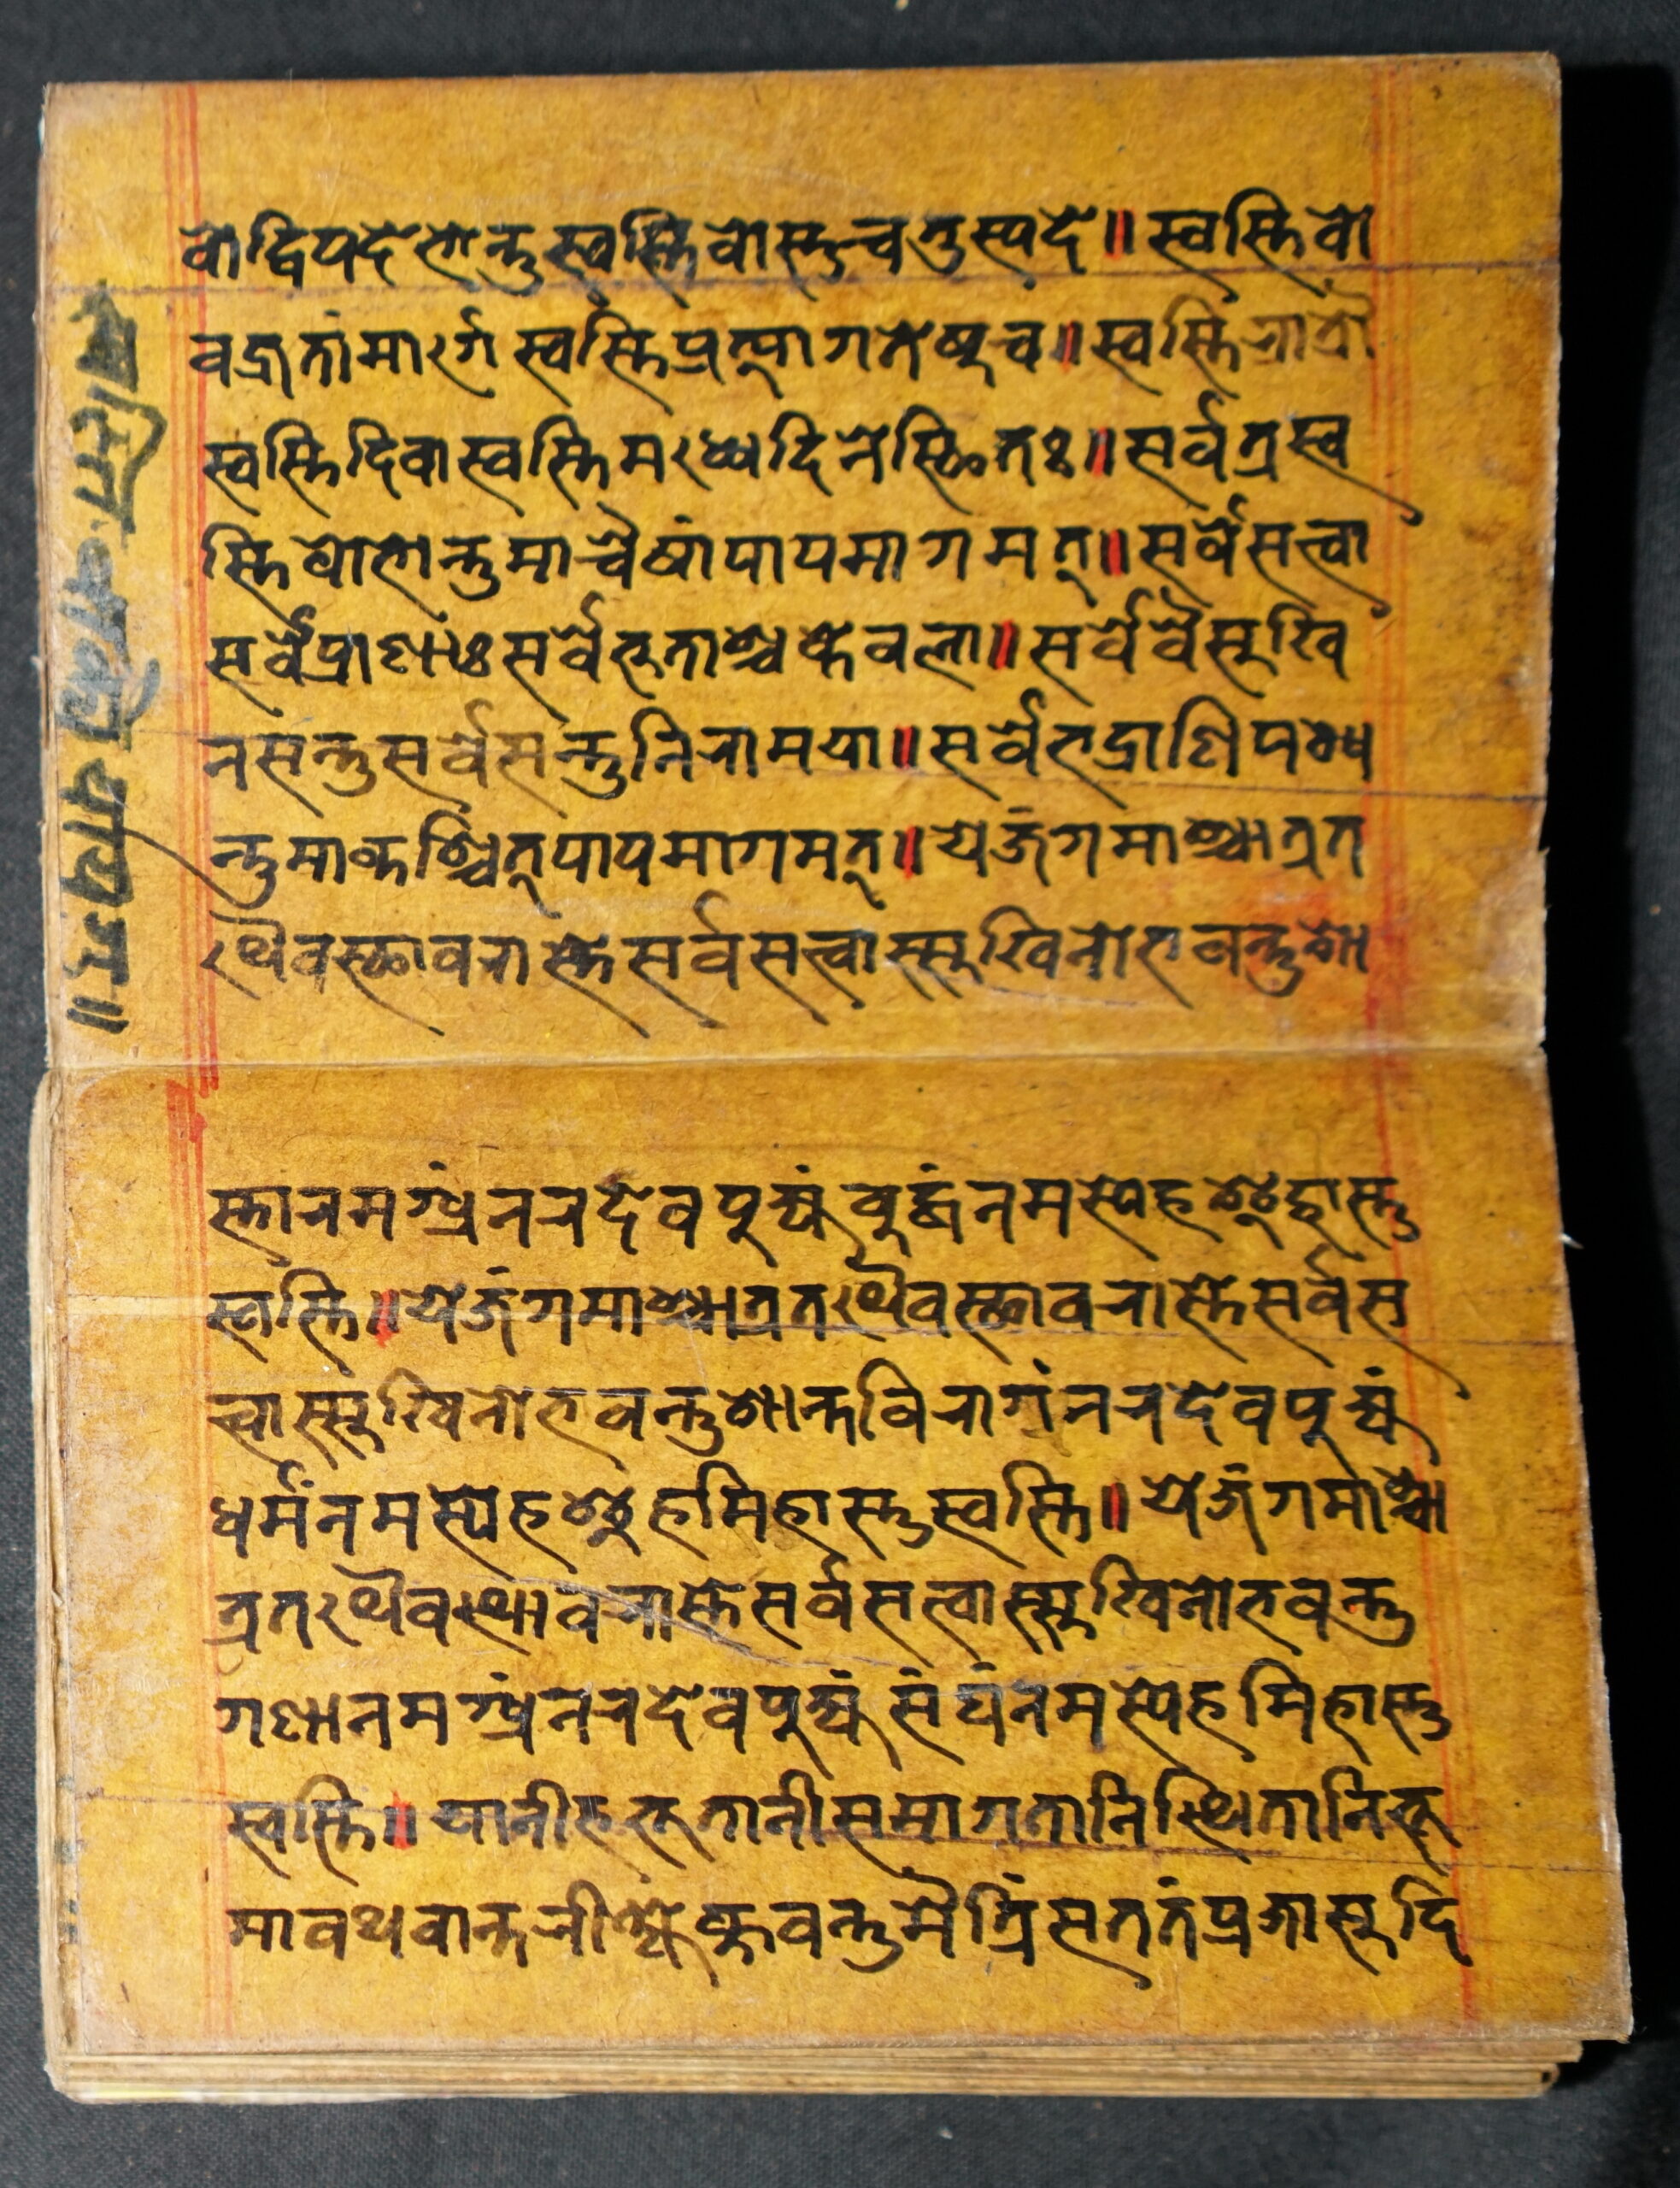 वो द्विपदे भोन्तु स्वस्ति वोस्तु चतुस्पदे ॥ स्वस्ति वो
वज्रतां मार्ग स्वस्ति प्रत्यागतेषु च ॥ स्वस्ति रात्रौ
स्वस्ति दिवा स्वस्ति मध्यदिने स्थितः ॥ सर्वत्र स्व
स्ति वो भोन्तु माचैषां पापमागमत् ॥ सर्वे सत्त्वा
सर्वे प्राणाः सर्वे भुताश्च केवला ॥ सर्वे वै सुखि
न सन्तु सर्वे सन्तु निरामया ॥ सर्वे भद्राणि पश्य
न्तु माकश्चित् पापमागमत् ॥ ये जंगमाश्चात्र त
थैव स्थावरास्ते सर्व सत्त्वास्सुखिनो भवन्तु शा
स्तारमग्रं नरदेवपुज्यं बुद्धं नमस्येह शुहास्तु
स्वस्ति ॥ ये जंगमाश्चात्र तथैव स्थावरास्ते सर्व स
त्वास्सुखिनो भवन्तु शान्त विरागं नरदेवपुज्यं
धर्मं नमस्येह शुहमिहास्तु स्वस्ति ॥ ये जंगमाश्चा
त्र तथैव स्थावरास्ते सर्व सत्त्वास्सुखिनो भवन्तु
गणानमग्रं नरदेवपुज्यं संघं नमस्येहमिहास्तु
स्वस्ति ॥ यानीह भूतानी समागतानि स्थितानि भू
मावथवान्तरीक्षे कुवन्तु मैत्रिं सततं प्रजासु दि